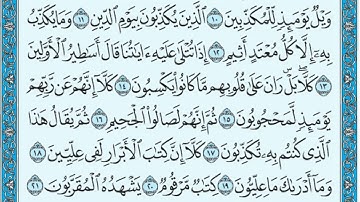 وَيْلٌ يَوْمَئِذٍ لِّلْمُكَذِّبِينَ ١٠ الَّذِينَ يُكَذِّبُونَ بِيَوْمِ الدِّينِ ١١ وَمَا يُكَذِّبُ
بِهِۦٓ إِلَّا كُلُّ مُعْتَدٍ أَثِيمٍ ١٢ إِذَا تُتْلَىٰ عَلَيْهِ ءَايَٰتُنَا قَالَ أَسَٰطِيرُ الْأَوَّلِينَ
١٣ كَلَّا ۖ بَلْ ۜ رَانَ عَلَىٰ قُلُوبِهِم مَّا كَانُوا۟ يَكْسِبُونَ ١٤ كَلَّآ إِنَّهُمْ عَن رَّبِّهِمْ
يَوْمَئِذٍ لَّمَحْجُوبُونَ ١٥ ثُمَّ إِنَّهُمْ لَصَالُوا۟ الْجَحِيمِ ١٦ ثُمَّ يُقَالُ هَٰذَا
الَّذِى كُنتُم بِهِۦ تُكَذِّبُونَ ١٧ كَلَّآ إِنَّ كِتَٰبَ الْأَبْرَارِ لَفِى عِلِّيِّينَ
١٨ وَمَآ أَدْرَىٰكَ مَا عِلِّيُّونَ ١٩ كِتَٰبٌ مَّرْقُومٌ ٢٠ يَشْهَدُهُ الْمُقَرَّبُونَ ٢١